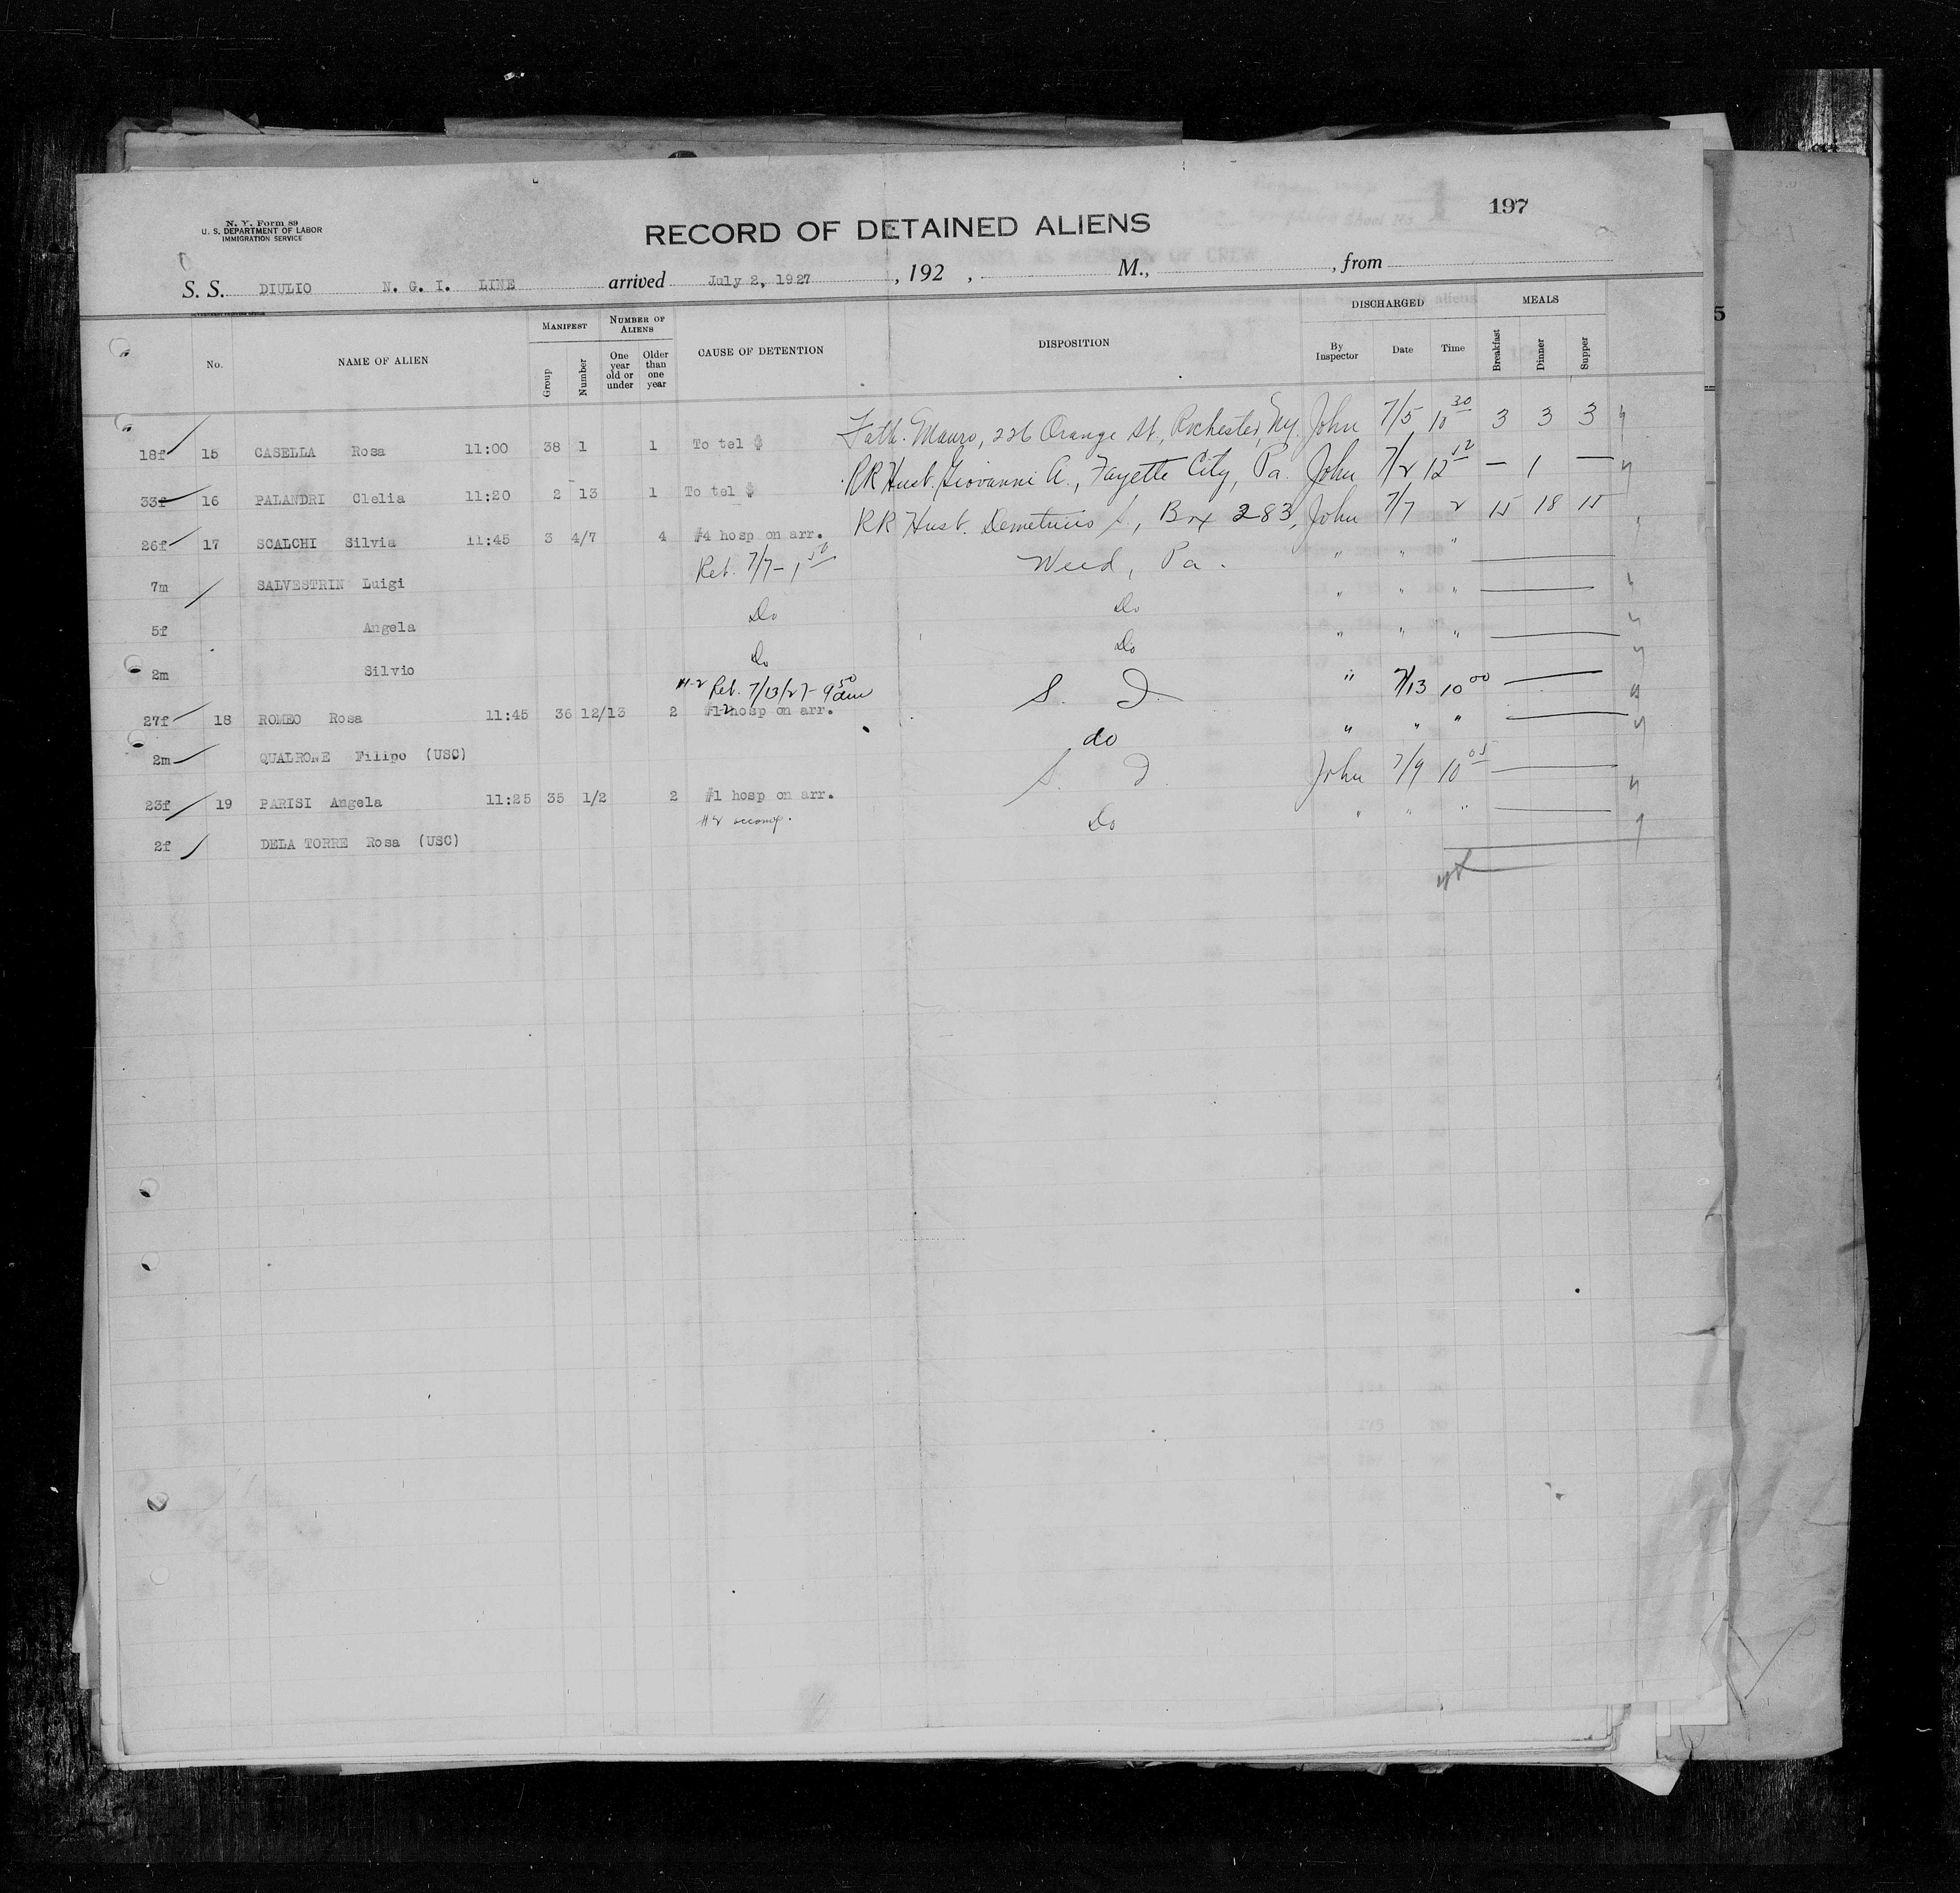 N. Y. Form 89
U. S. DEPARTMENT OF LABOR
IMMIGRATION SERVICE
RECORD OF DETAINED ALIENS
197
S. S. DIULIO N. G. I. LINE arrived July 2, 1927, 192 , M., , from
5
No. NAME OF ALIEN MANIFEST Group Number NUMBER OF ALIENS One year old or under Older than one year CAUSE OF DETENTION DISPOSITION DISCHARGED By Inspector Date Time MEALS Breakfast Dinner Supper
18f 15 CASELLA Rosa 11:00 38 1 1 To tel $ Fath. Mauro, 226 Orange St., Rochester, NY. John 7/5 10 30 3 3 3
33f 16 PALANDRI Clelia 11:20 2 13 1 To tel $ RR Husb. Giovanni A., Fayette City, Pa. John 7/2 12 12 — 1 —
26f 17 SCALCHI Silvia 11:45 3 4/7 4 #4 hosp on arr. RR Husb. Demetrio S., Box 283, John 7/7 2 15 18 15
7m SALVESTRIN Luigi Ret. 7/7 - 1 50 Weed, Pa. " " "
5f Angela Do Do " " "
2m Silvio Do Do " " "
H-2 Ret. 7/13/27 - 9 50 am
27f 18 ROMEO Rosa 11:45 36 12/13 2 #1-2 hosp on arr. S. I. " 7/13 10 00
2m QUALRONE Filipo (USC) do " " "
23f 19 PARISI Angela 11:25 35 1/2 2 #1 hosp on arr. S. I. John 7/9 10 05
#2 accomp.
2f DELA TORRE Rosa (USC) Do " " "